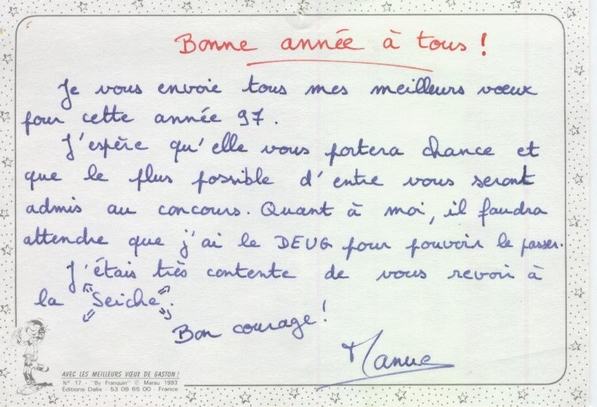 Bonne année à tous !
Je vous envoie tous mes meilleurs voeux
pour cette année 97.
J'espère qu'elle vous portera chance et
que le plus possible d'entre vous seront
admis au concours. Quant à moi, il faudra
attendre que j'ai le DEUG pour pouvoir le passer.
J'étais très contente de vous revoir à
la "Seiche".
Bon courage !
Manue
AVEC LES MEILLEURS VŒUX DE GASTON !
N° 17 - "By Franquin" © Marsu 1993
Éditions Dalix - 53 09 65 00 - France